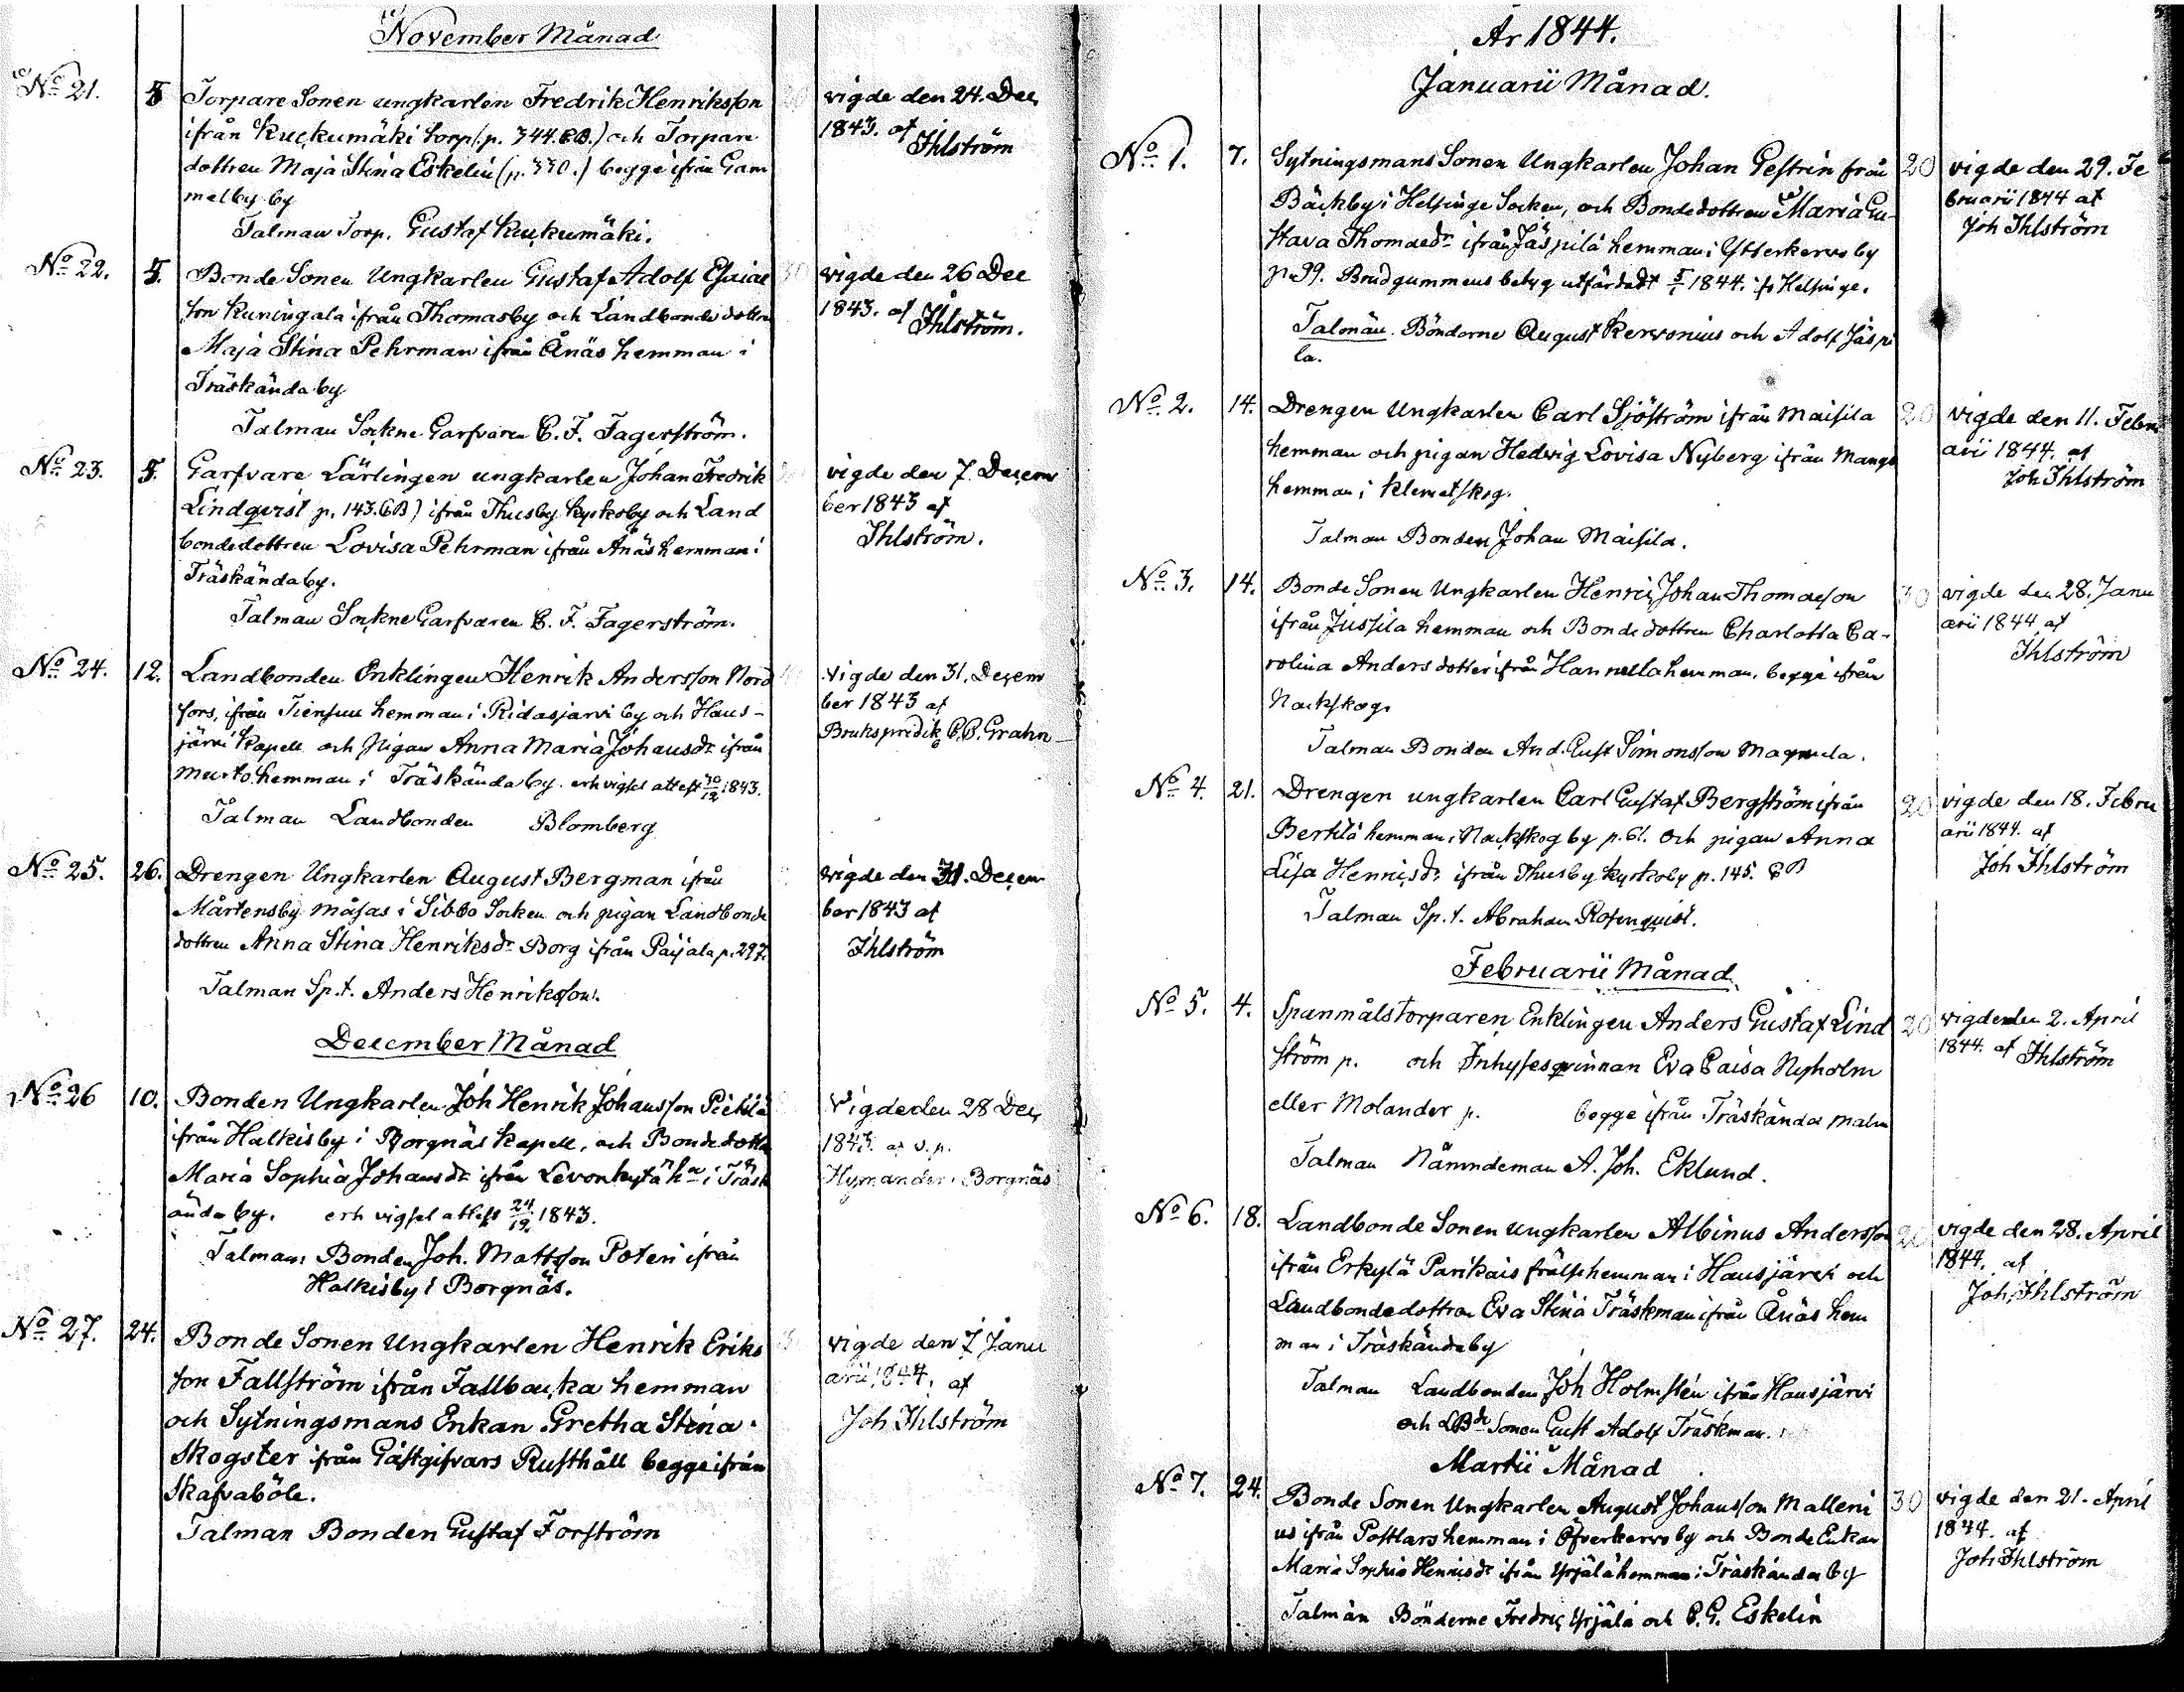 November Månad
No 21. 5 Torpare Sonen ungkarlen Fredrik Henriksson
ifrån Kuckumäki torp (p. 344. CB.) och Torpare
dottren Maja Stina Eskelin (p. 330.) begge ifrån Gam
melby by
Talman Torp. Gustaf Kuckumäki.
vigde den 24. Dec
1843. af
Ihlström
No 22. 5. Bonde Sonen Ungkarlen Gustaf Adolf Esaias
son Kuningala ifrån Thomasby och Landbonde dottre
Maja Stina Pehrman ifrån Ånäs hemman i
Träskända by
Talman Sockne Garfvaren C. F. Fagerström.
vigde den 26 Dec
1843. af
Ihlström.
No 23. 5. Garfvare Lärlingen ungkarlen Johan Fredrik
Lindqvist p. 143. CB) ifrån Thusby Kyrkoby och Land
bondedottren Lovisa Pehrman ifrån Ånäs hemman i
Träskända by.
Talman Sockne Garfvaren C. F. Fagerström.
vigde den 7. Decem
ber 1843 af
Ihlström.
No 24. 12. Landbonden Enklingen Henrik Andersson Nord
fors, ifrån Tiensuu hemman i Ridasjärvi by och Haus-
järvi Kapell och Pigan Anna Maria Johansdr ifrån
Murto hemman i Träskända by. erh vigsel attest 30/12 1843.
Talman Landbonden Blomberg
Vigde den 31. Decem
ber 1843 af
Brukspredik. C. C. Grahn
No 25. 26. Drengen Ungkarlen August Bergman ifrån
Mårtensby Måsas i Sibbo Socken och pigan Landbonde
dottren Anna Stina Henriksdr Borg ifrån Paijala p. 297.
Talman Sp. t. Anders Henriksson.
vigde den 31. Decem
ber 1843 af
Ihlström
December Månad
No 26 10. Bonden Ungkarlen Joh Henrik Johansson Piehlä
ifrån Halkisby i Borgnäs Kapell, och Bonde dottre
Maria Sophia Johansdr ifrån Levonkytä hn i Träsk
ända by. erh vigsel attest 24/12 1843.
Talman: Bonden Joh. Mattsson Poteri ifrån
Halkisby i Borgnäs.
Vigde den 28 Dec
1843. af v. p.
Hymander i Borgnäs
No 27. 24. Bonde Sonen Ungkarlen Henrik Eriks
son Fallström ifrån Fallbacka hemman
och Sytningsmans Enkan Gretha Stina
Skogster ifrån Gästgifvars Rusthåll begge ifrån
Skafvaböle.
Talman Bonden Gustaf Forström
vigde den 7 Janu
arii 1844. af
Joh Ihlström
År 1844.
Januarii Månad.
No 1. 7. Sytningsmans Sonen Ungkarlen Johan Gestrin från
Bäckby i Helsinge Socken, och Bondedottren Maria Gu-
stava Thomaedr ifrån Jäspilä hemman i Ytterkervo by
p. 99. Brudgummens betyg utfärdadt 5/1 1844. ifr Helsinge.
Talmän. Bönderne August Kervonius och Adolf Jäspi
la.
20 vigde den 29. Fe
bruarii 1844 af
Joh Ihlström
No 2. 14. Drengen Ungkarlen Carl Sjöström ifrån Maisila
hemman och pigan Hedvig Lovisa Nyberg ifrån Mangs
hemman i Klemetskog.
Talman Bonden Johan Maisila.
20 vigde den 11. Febru
arii 1844. af
Joh Ihlström
No 3. 14. Bonde Sonen Ungkarlen Henric Johan Thomasson
ifrån Jussila hemman och Bonde dottren Charlotta Ca-
rolina Anders dotter ifrån Hannella hemman, begge ifrån
Nackskog.
Talman Bonden And. Gust Simonsson Magnula.
30 vigde den 28. Janu
arii 1844 af
Ihlström
No 4. 21. Drengen ungkarlen Carl Gustaf Bergström ifrån
Bertilä hemman i Nackskog by p. 61. och pigan Anna
Lisa Henricsdr ifrån Thusby Kyrkoby p. 145. CB
Talman Sp. t. Abraham Rosenquist.
20 vigde den 18. Febru
arii 1844. af
Joh Ihlström
Februarii Månad
No 5. 4. Spanmålstorparen Enklingen Anders Gustaf Lind
ström p. och Inhysesqvinnan Eva Caisa Nyholm
eller Molander p. begge ifrån Träskända malm
Talman Nämndeman A. Joh. Eklund.
20 vigde den 2. April
1844. af Ihlström
No 6. 18. Landbonde Sonen ungkarlen Albinus Andersson
ifrån Erkylä Parikais frälsehemman i Hausjärvi och
Landbondedottren Eva Stina Träskman ifrån Ånäs hem
man i Träskända by
Talman Landbonden Joh Holmstén ifrån Hausjärvi
och LBde Sonen Gust Adolf Träskman.
20 vigde den 28. April
1844. af
Joh. Ihlström
Martii Månad
No 7. 24. Bonde Sonen Ungkarlen August Johansson Malleni
us ifrån Postlars hemman i Öfverkervo by och Bonde Enkan
Maria Sophia Henricsdr ifrån Yrjälä hemman i Träskända by
Talmän Bönderne Fredric Yrjälä och C. G. Eskelin
30 vigde den 21. April
1844. af
Joh Ihlström